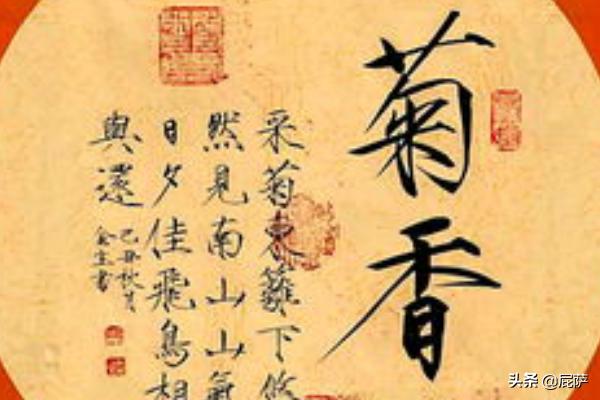 菊香
采菊東籬下悠
然見南山山氣
日夕佳飛鳥相
與還
己丑秋月
书
头条 @屁萨